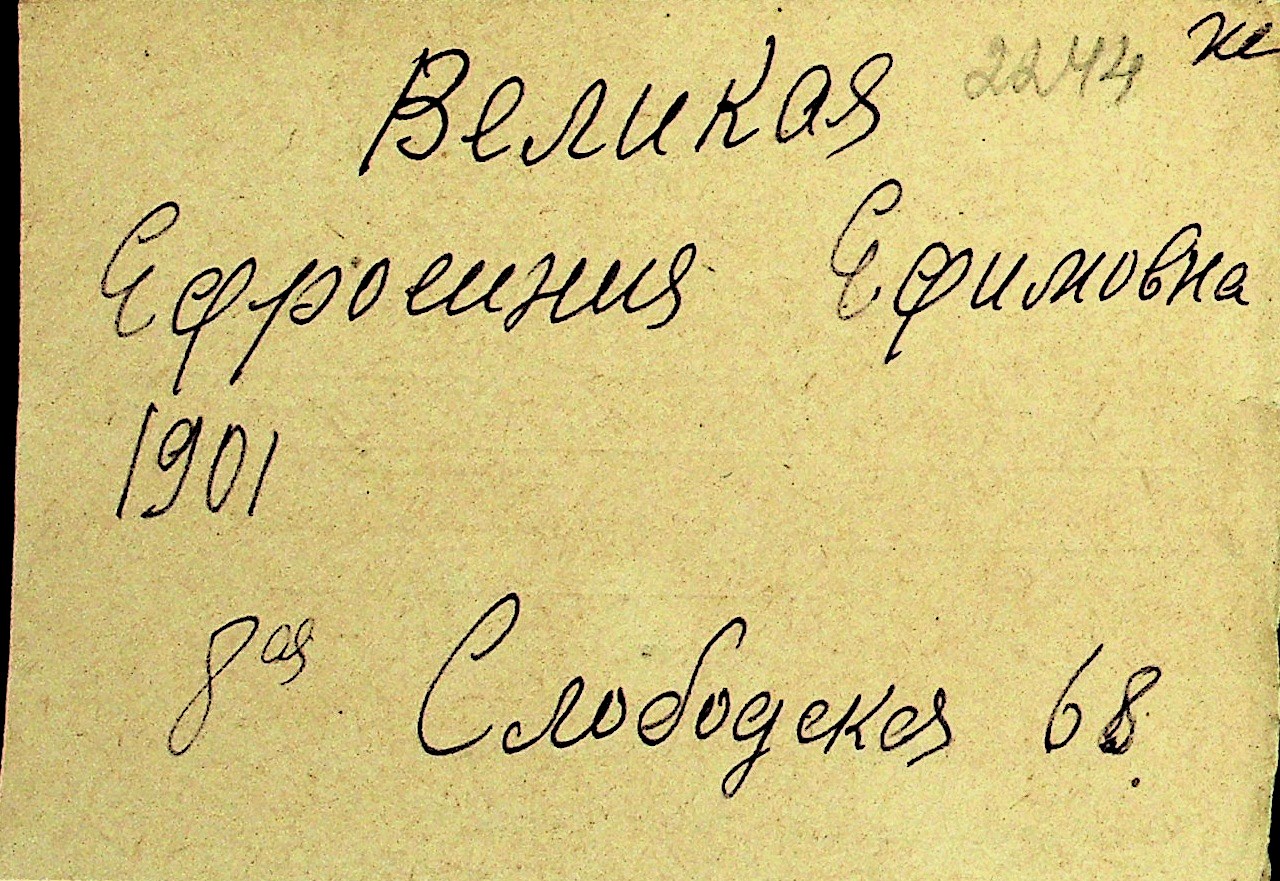 2244 же
Великая
Ефросиния Ефимовна
1901
8ая Слободская 68.